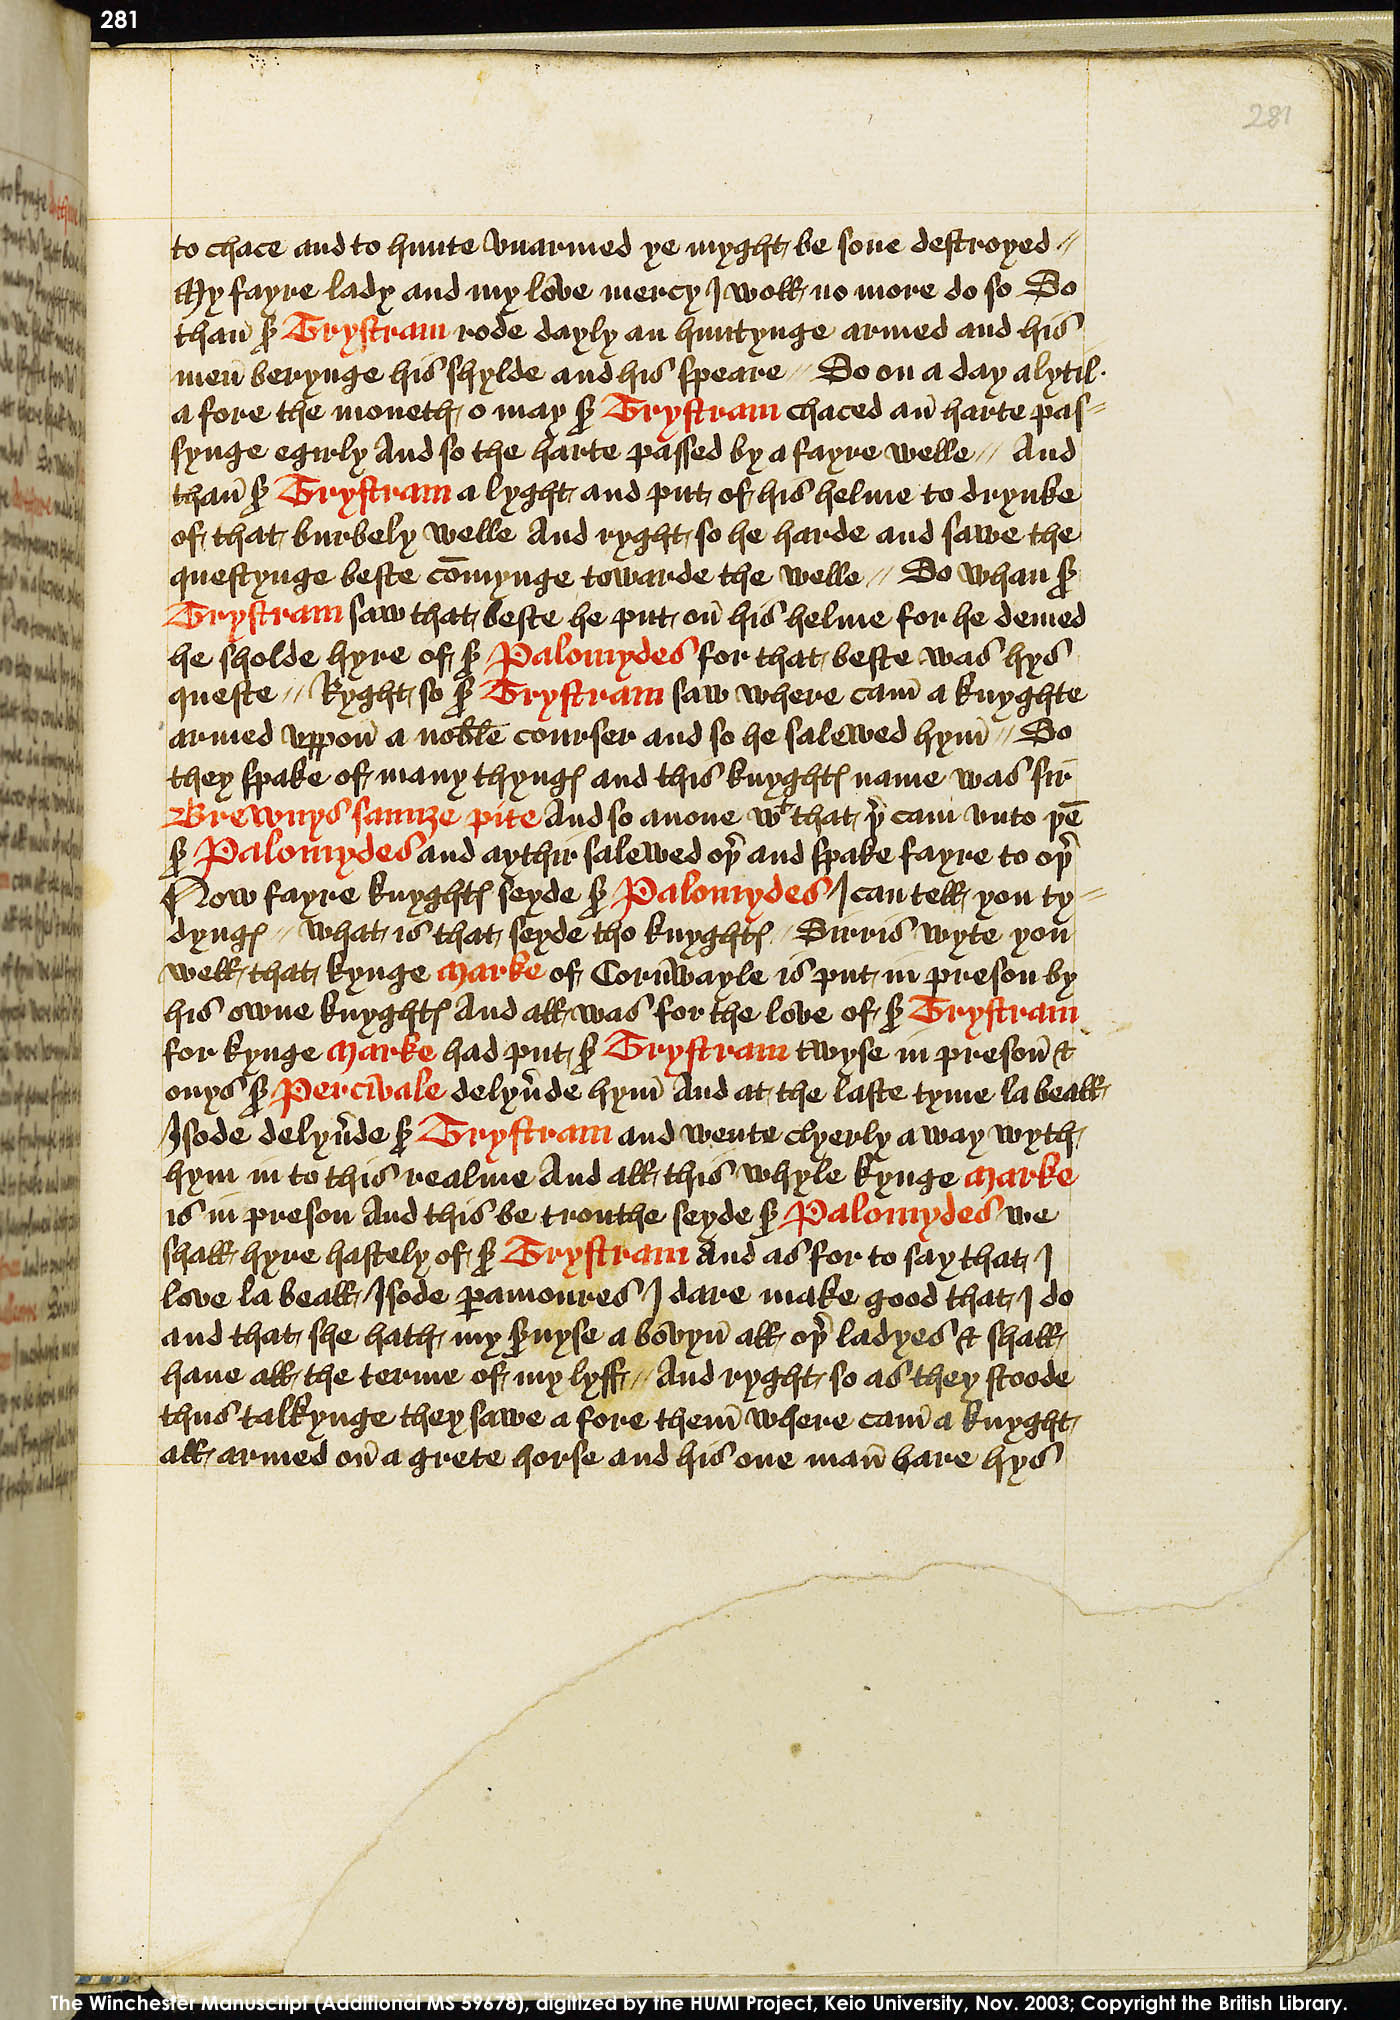 281
281
to chace and to hunte vnarmed ye myght be sone destroyed //
My fayre lady and my love mercy I woll no more do so So
than̄ sr̄ Trystram rode dayly an huntynge armed and his
men̄ berynge his shylde and his speare // So on a day a lytil
a fore the moneth o may sr̄ Trystram chaced an̄ harte pas=
synge egirly And so the harte passed by a fayre welle // And
than̄ sr̄ Trystram a lyght and put of his helme to drynke
of that burbely welle And ryght so he harde and sawe the
questynge beste cōmynge towarde the welle // So whan sr̄
Trystram saw that beste he put on̄ his helme for he demed
he sholde hyre of sr̄ Palomydes for that beste was hys
queste // Ryght so sr̄ Trystram saw where cam̄ a knyghte
armed vppon̄ a noble courser and so he salewed hym̄ // So
they spake of many thyngꝭ and this knyghtꝭ name was sir
Brewnys saunze pite And so anone wᵗ that þr̄ cam vnto þē
sr̄ Palomydes and aythir salewed oþr̄ and spake fayre to oþr̄
Now fayre knyghtꝭ seyde sr̄ Palomydes I can tell you ty=
dyngꝭ // what is that seyde tho knyghtꝭ // Sirris wyte you
well that kynge Marke of Corn̄wayle is put in preson by
his owne knyghtꝭ And all was for the love of sr̄ Trystram
for kynge Marke had put sr̄ Trystram twyse in preson̄ &
onys sr̄ Percivale delyv̄de hym̄ And at the laste tyme la beall
Isode delyv̄de sr̄ Trystram and wente clyerly a way wyth
hym in to this realme And all this whyle kynge Marke
is in preson And this be trouthe seyde sr̄ Palomydes we
shall hyre hastely of sr̄ Trystram And as for to say that I
love la beall Isode ꝑamoures I dare make good that I do
and that she hath my s̄uyse a bovyn̄ all oþr̄ ladyes & shall
haue all the terme of my lyff // And ryght so as they stoode
thus talkynge they sawe a fore them̄ where cam̄ a knyght
all armed on̄ a grete horse and his one man̄ bare hys
The Winchester Manuscript (Additional MS 59678), digitized by the HUMI Project, Keio University, Nov. 2003; Copyright the British Library.